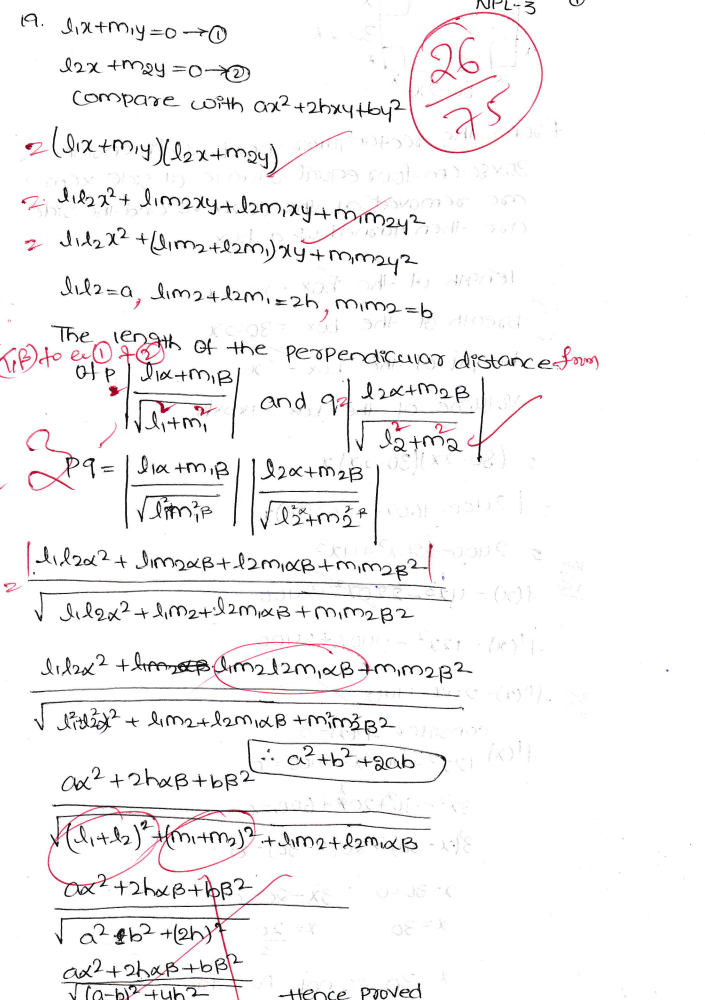 NPL-3
19. l₁x+m₁y=0 →①
l₂x+m₂y=0→②
compare with ax²+2hxy+by²
26/75
= (l₁x+m₁y)(l₂x+m₂y)
= l₁l₂x²+l₁m₂xy+l₂m₁xy+m₁m₂y²
= l₁l₂x²+(l₁m₂+l₂m₁)xy+m₁m₂y²
l₁l₂=a, l₁m₂+l₂m₁=2h, m₁m₂=b
The length of the perpendicular distance from
β) to eq ① & ②
of p = |l₁α+m₁β / √l₁²+m₁²| and q= |l₂α+m₂β / √l₂²+m₂²|
3
pq = |l₁α+m₁β / √l₁²m₁²β| |l₂α+m₂β / √l₂²α+m₂²β|
= |l₁l₂α²+l₁m₂αβ+l₂m₁αβ+m₁m₂β²| / √l₁l₂α²+l₁m₂+l₂m₁αβ+m₁m₂β²
l₁l₂α²+l₁m₂l₂m₁αβ+m₁m₂β² / √l₁²+l₂²α²+l₁m₂+l₂m₁αβ+m₁²m₂²β²
∴ a²+b²+2ab
aα²+2hαβ+bβ² / √(l₁+l₂)²+(m₁+m₂)²+l₁m₂+l₂m₁αβ
aα²+2hαβ+bβ² / √a²+b²+(2h)²
aα²+2hαβ+bβ² / √(a-b)²+4h² Hence proved